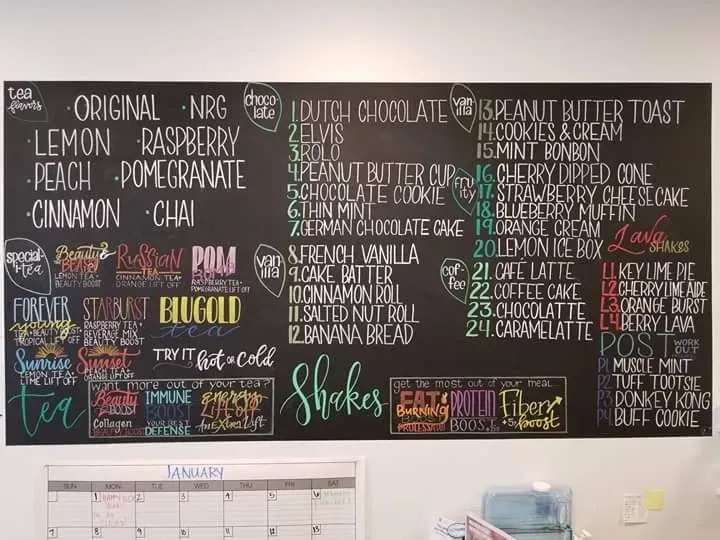 tea
flavors
• ORIGINAL • NRG
• LEMON • RASPBERRY
• PEACH • POMEGRANATE
• CINNAMON • CHAI
special-
i-tea
Beauty &
LEMON TEA+
BEAUTY BOOST
RUSSIAN
TEA
CINNAMON TEA+
ORANGE LIFT OFF
POM
RASPBERRY TEA+
POMEGRANATE LIFT OFF
FOREVER
young
TEA+BEAUTY BOOST+
TROPICAL LIFT OFF
STARBURST
RASPBERRY TEA+
BEVERAGE MIX
BEAUTY BOOST
BLUGOLD
tea
Sunrise
LEMON TEA+
LIME LIFT OFF
Sunset
PEACH TEA+
ORANGE LIFT OFF
TRY IT hot or cold
tea
want more out of your tea?
Beauty
BOOST
Collagen
IMMUNE
BOOST
YOUR BEST
DEFENSE
An Extra Lift
choco-
late
1. DUTCH CHOCOLATE
2. ELVIS
3. ROLO
4. PEANUT BUTTER CUP
5. CHOCOLATE COOKIE
6. THIN MINT
7. GERMAN CHOCOLATE CAKE
van-
illa
8. FRENCH VANILLA
9. CAKE BATTER
10. CINNAMON ROLL
11. SALTED NUT ROLL
12. BANANA BREAD
Shakes
van-
illa
13. PEANUT BUTTER TOAST
14. COOKIES & CREAM
15. MINT BONBON
fru-
ity
16. CHERRY DIPPED CONE
17. STRAWBERRY CHEESECAKE
18. BLUEBERRY MUFFIN
19. ORANGE CREAM
20. LEMON ICE BOX
cof-
fee
21. CAFÉ LATTE
22. COFFEE CAKE
23. CHOCOLATTE
24. CARAMELATTE
Lava
SHAKES
L1. KEY LIME PIE
L2. CHERRY LIME AIDE
L3. ORANGE BURST
L4. BERRY LAVA
POST WORK
OUT
P1. MUSCLE MINT
P2. TUFF TOOTSIE
P3. DONKEY KONG
P4. BUFF COOKIE
get the most out of your meal...
FAT
BURNING
PROTEIN
BOOST
Fiber
boost
JANUARY
SUN MON TUE WED THU FRI SAT
1 2 3 4 5 6
7 8 9 10 11 12 13